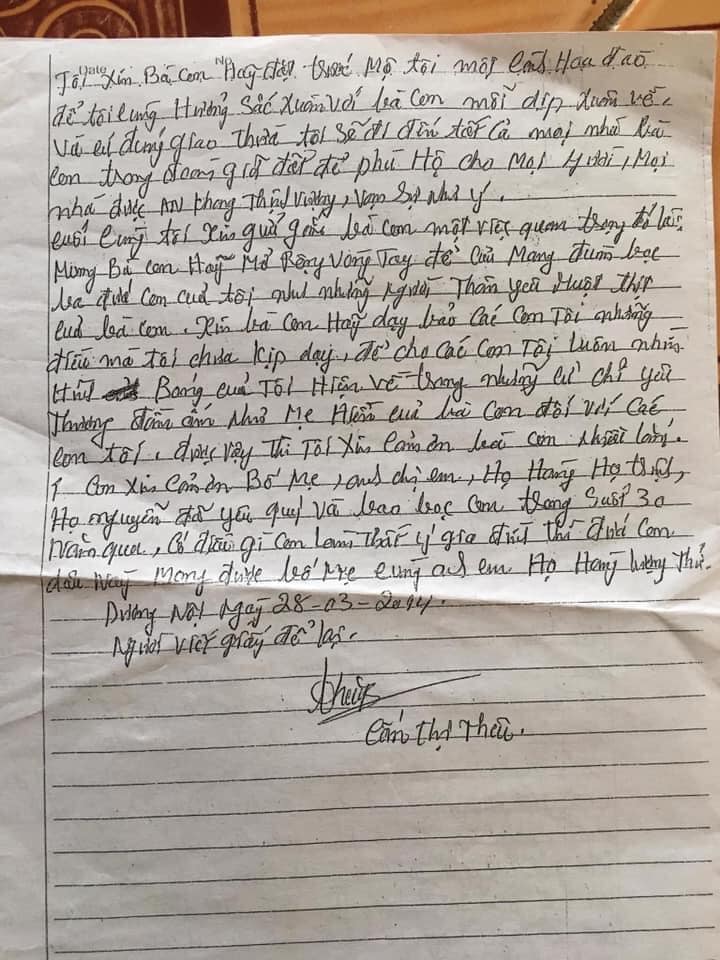 Date N
Tôi xin Bà con Hãy đặt trước Mộ tôi một cành Hoa đào
để tôi cùng Hưởng Sắc xuân với bà con mỗi dịp xuân về.
Và cứ đúng giao thừa tôi sẽ đi đến tất cả mọi nhà bà
con trong đoàn giữ đất để phù Hộ cho Mọi người, Mọi
nhà được AN Khang Thịnh Vượng, Vạn Sự Như ý.
cuối cùng tôi xin gửi gắm bà con một việc quan trọng đó là:
Mong Bà con Hãy Mở Rộng Vòng Tay để cưu Mang đùm bọc
ba đứa con của tôi như những người Thân yêu Ruột thịt
của bà con. Xin bà con Hãy dạy bảo Các Con Tôi những
điều mà tôi chưa kịp dạy, để cho Các Con Tôi Luôn nhìn
thấy Bóng của Tôi Hiện về trong những cử chỉ yêu
thương đầm ấm Như Mẹ Hiền của bà con đối với Các
con tôi. được vậy thì Tôi Xin Cảm ơn bà con nhiều lắm.
Con Xin Cảm ơn Bố Mẹ, anh chị em, Họ Hàng Họ trịnh,
Họ nguyễn đã yêu quý và bao bọc con trong Suốt 30
Năm qua, Có điều gì con Làm thất ý gia đình thì đứa con
dâu Này Mong được bố Mẹ cùng anh em Họ Hàng lượng Thứ.
Dương Nội Ngày 28-03-2014.
Người viết giấy để lại.
Thêu
Cấn Thị Thêu.